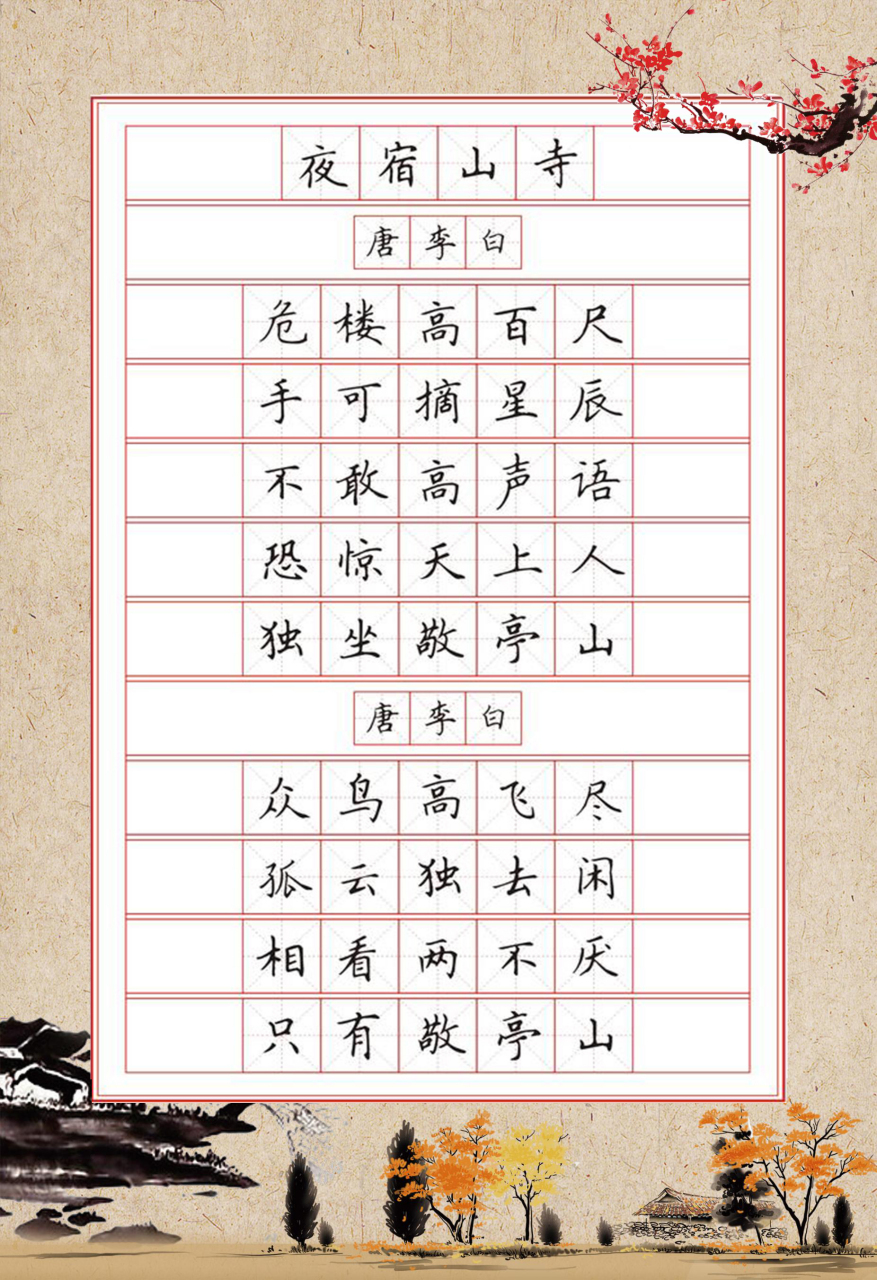 夜宿山寺
唐李白
危楼高百尺
手可摘星辰
不敢高声语
恐惊天上人
独坐敬亭山
唐李白
众鸟高飞尽
孤云独去闲
相看两不厌
只有敬亭山